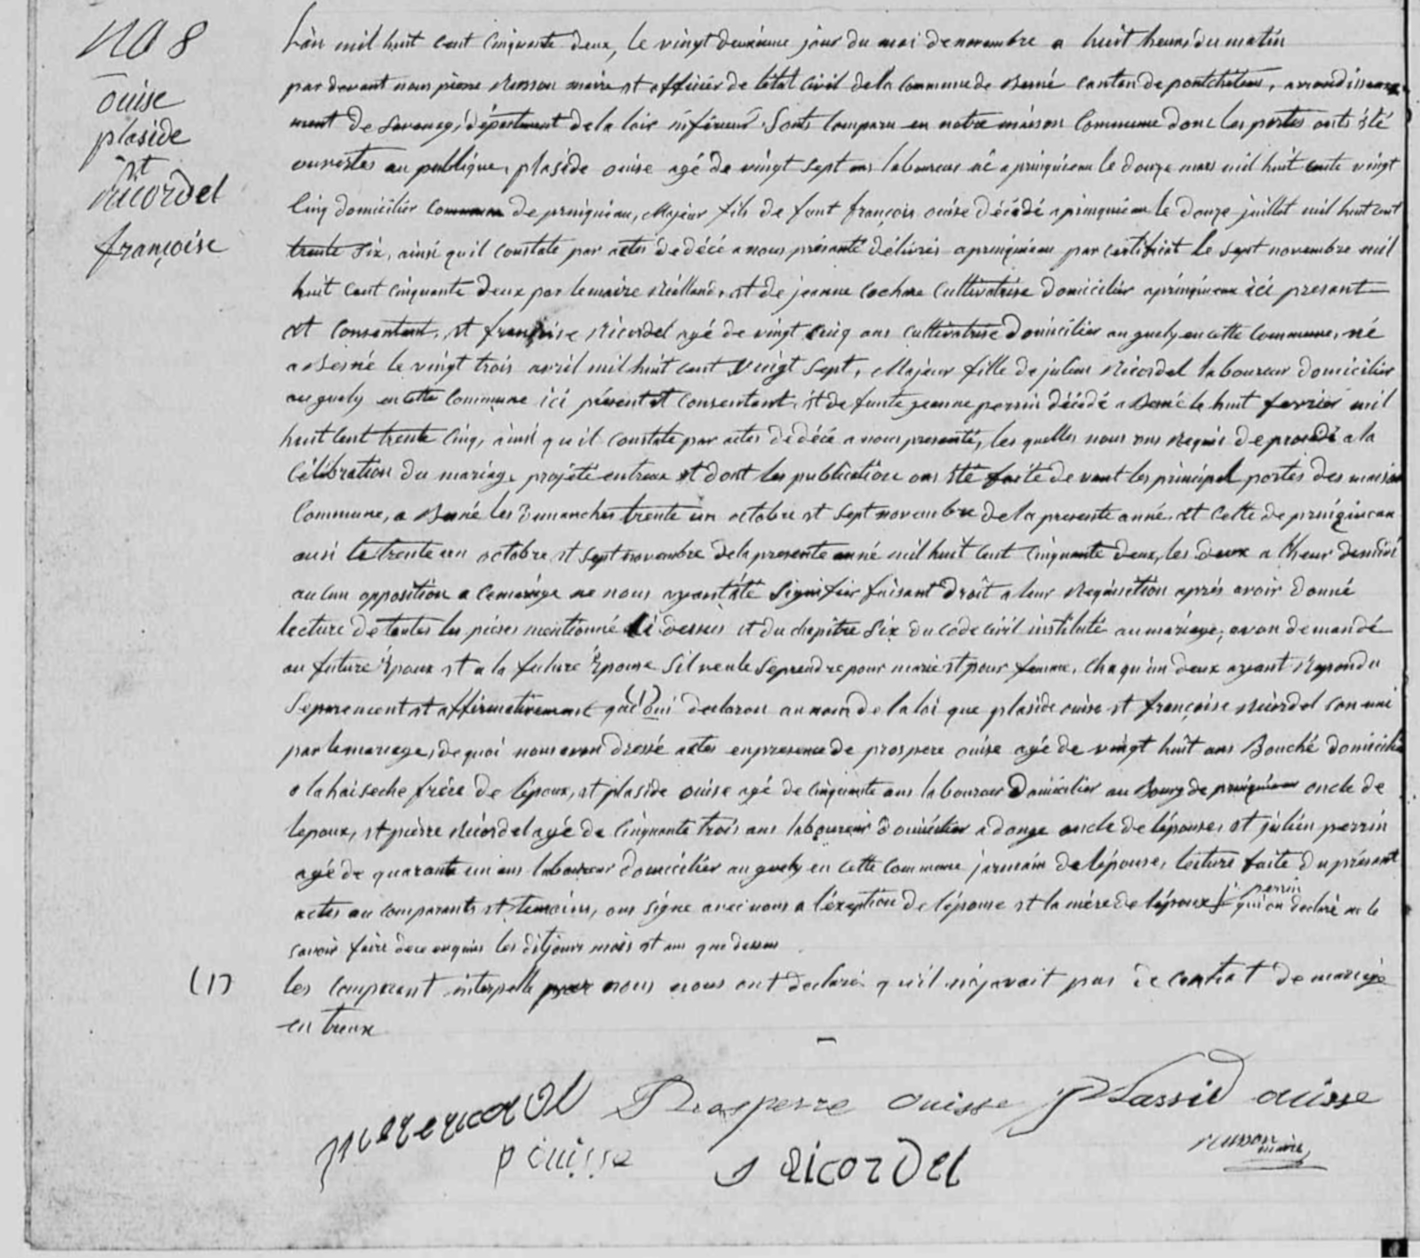 No 8
ouise
plaside
et
Ricordel
françoise
Lan mil huit cent cinquante deux, le vingt deuxième jour du moi de novembre a huit heures du matin
par devant nous pierre maire et officier de létat civil de la commune de Besné canton de pontchâteau, arrondisse
ment de Savenay, département de la loir inférieur Sonts comparu en notre maison Commune donc les portes onts été
ouvertes au publique, plaside ouise agé de vingt sept ans laboureur né a prinquiau le douze mars mil huit cents vingt
Cinq domicilier commune de prinquiau, Majeur fils de feut françois ouise décédé a prinquiau le douze juillet mil huit cent
trente Six, ainsi qu il constate par actes de décé a nous présenté délivrés a prinquiau par certifiat le sept novembre mil
huit cent cinquante deux par le maire et de jeanne Cultivatrise domicilier a prinquiau ici present
et Consentant, et françoise Ricordel agé de vingt cinq ans cultivatrise domicilier au guely en cette Commune, né
a Besné le vingt trois avril mil huit cent vingt sept, Majeur fille de julien Ricordel laboureur domicilier
au guely en cette Commune ici présent et consentant, et de funte jeanne perrin décédé a Besné le huit fevrier mil
huit cent trente cinq, ainsi qu il constate par actes de décé a nous presenté, les quelles nous ons Requis de procedé a la
Célébration du mariage projété entreux et dont les publication ons été faite de vant les principal portes des maison
Commune, a Besné les Dimanches trente un octobre et Sept novembre de la presente anné et celle de prinquiau
ausi le trente un octobre et sept novembre de la presente anné mil huit cent cinquante deux, les deux a lheur de midi
aucun opposition a ce mariage ne nous ayant été Signifier faisant droit a leur Requisition après avoir donné
lecture de toutes les pièses mentionné ci dessus et du chapitre Six du code civil institulé au mariage, avon demandé
au future Epoux et a la future Epouse Sil veule Se prendre pour marie et pour femme, chaqu un deux ayant Repondu
Separement et affirmativement que (1) oui declaron au nom de la loi que plaside ouise et françoise Ricordel son uni
par le mariage, de quoi nous avon dressé actes en presence de prospere ouise agé de vingt huit ans Bouché domicilié
a lahaiseche frère de lépoux, et plaside ouise agé de cinquante ans laboureur Domicilier au Bourg de prinquiau oncle de
lepoux, et pierre Ricordel agé de Cinquante trois ans laboureur domicilier a donge oncle de lépouse, et julien perrin
agé de quarante un ans laboureur domicilier au guely en cette commune jermain de lépouse, lecture faite du présent
actes au comparants et temoins, ons signé avec nous a léxeption de lépouse et la mère de lépoux et perrin qui on declaré ne le
savoir faire de ce enquis les dit jours mois et ans que dessus.
(1) les comparent interpellé par nous nous ont declaré qu'il n'ÿavait pas de contrat de mariage
en treux
Prosperre ouisse Plassid ouisse
p ouisse Ricordel maire